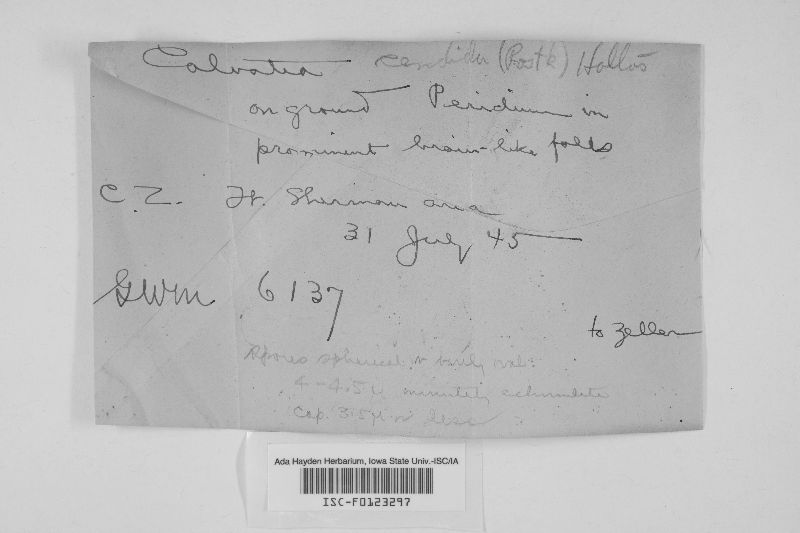 Calvatia candida (Rostk) Hollós
on ground Peridium in
prominent brain-like folds
C.Z. Ft. Sherman area
31 July 45
GWM 6137
to Zeller
Spores spherical or barely oval:
4-4.5 µ minutely echinulate
Cap. 3.5 µ or less
Ada Hayden Herbarium, Iowa State Univ.-ISC/IA
ISC-F0123297